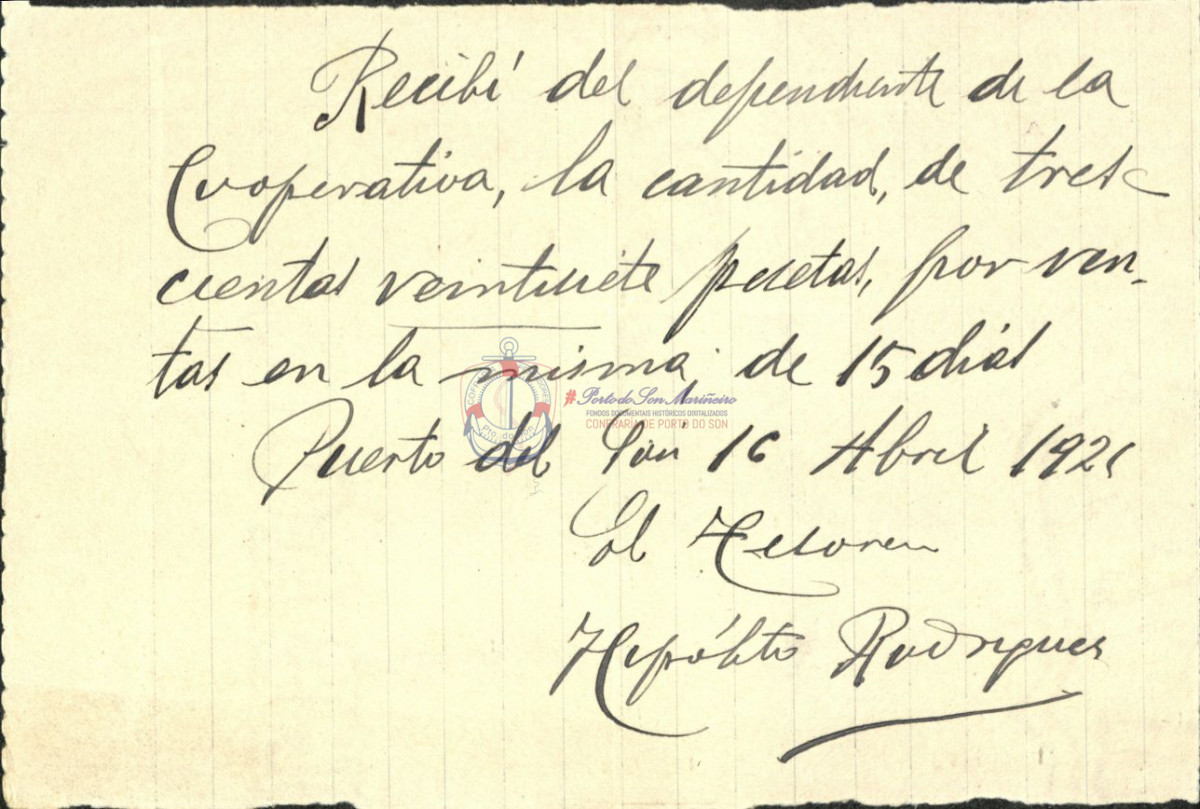 Recibí del dependiente de la
Cooperativa, la cantidad, de tres-
cientas veintisiete pesetas, por ven-
tas en la misma de 15 días
#PortodoSonMariñeiro
FONDOS DOCUMENTAIS HISTÓRICOS DIXITALIZADOS
CONFRARÍA DE PORTO DO SON
Puerto del Son 16 Abril 192
El Tesorero
Hipólito Rodrigues